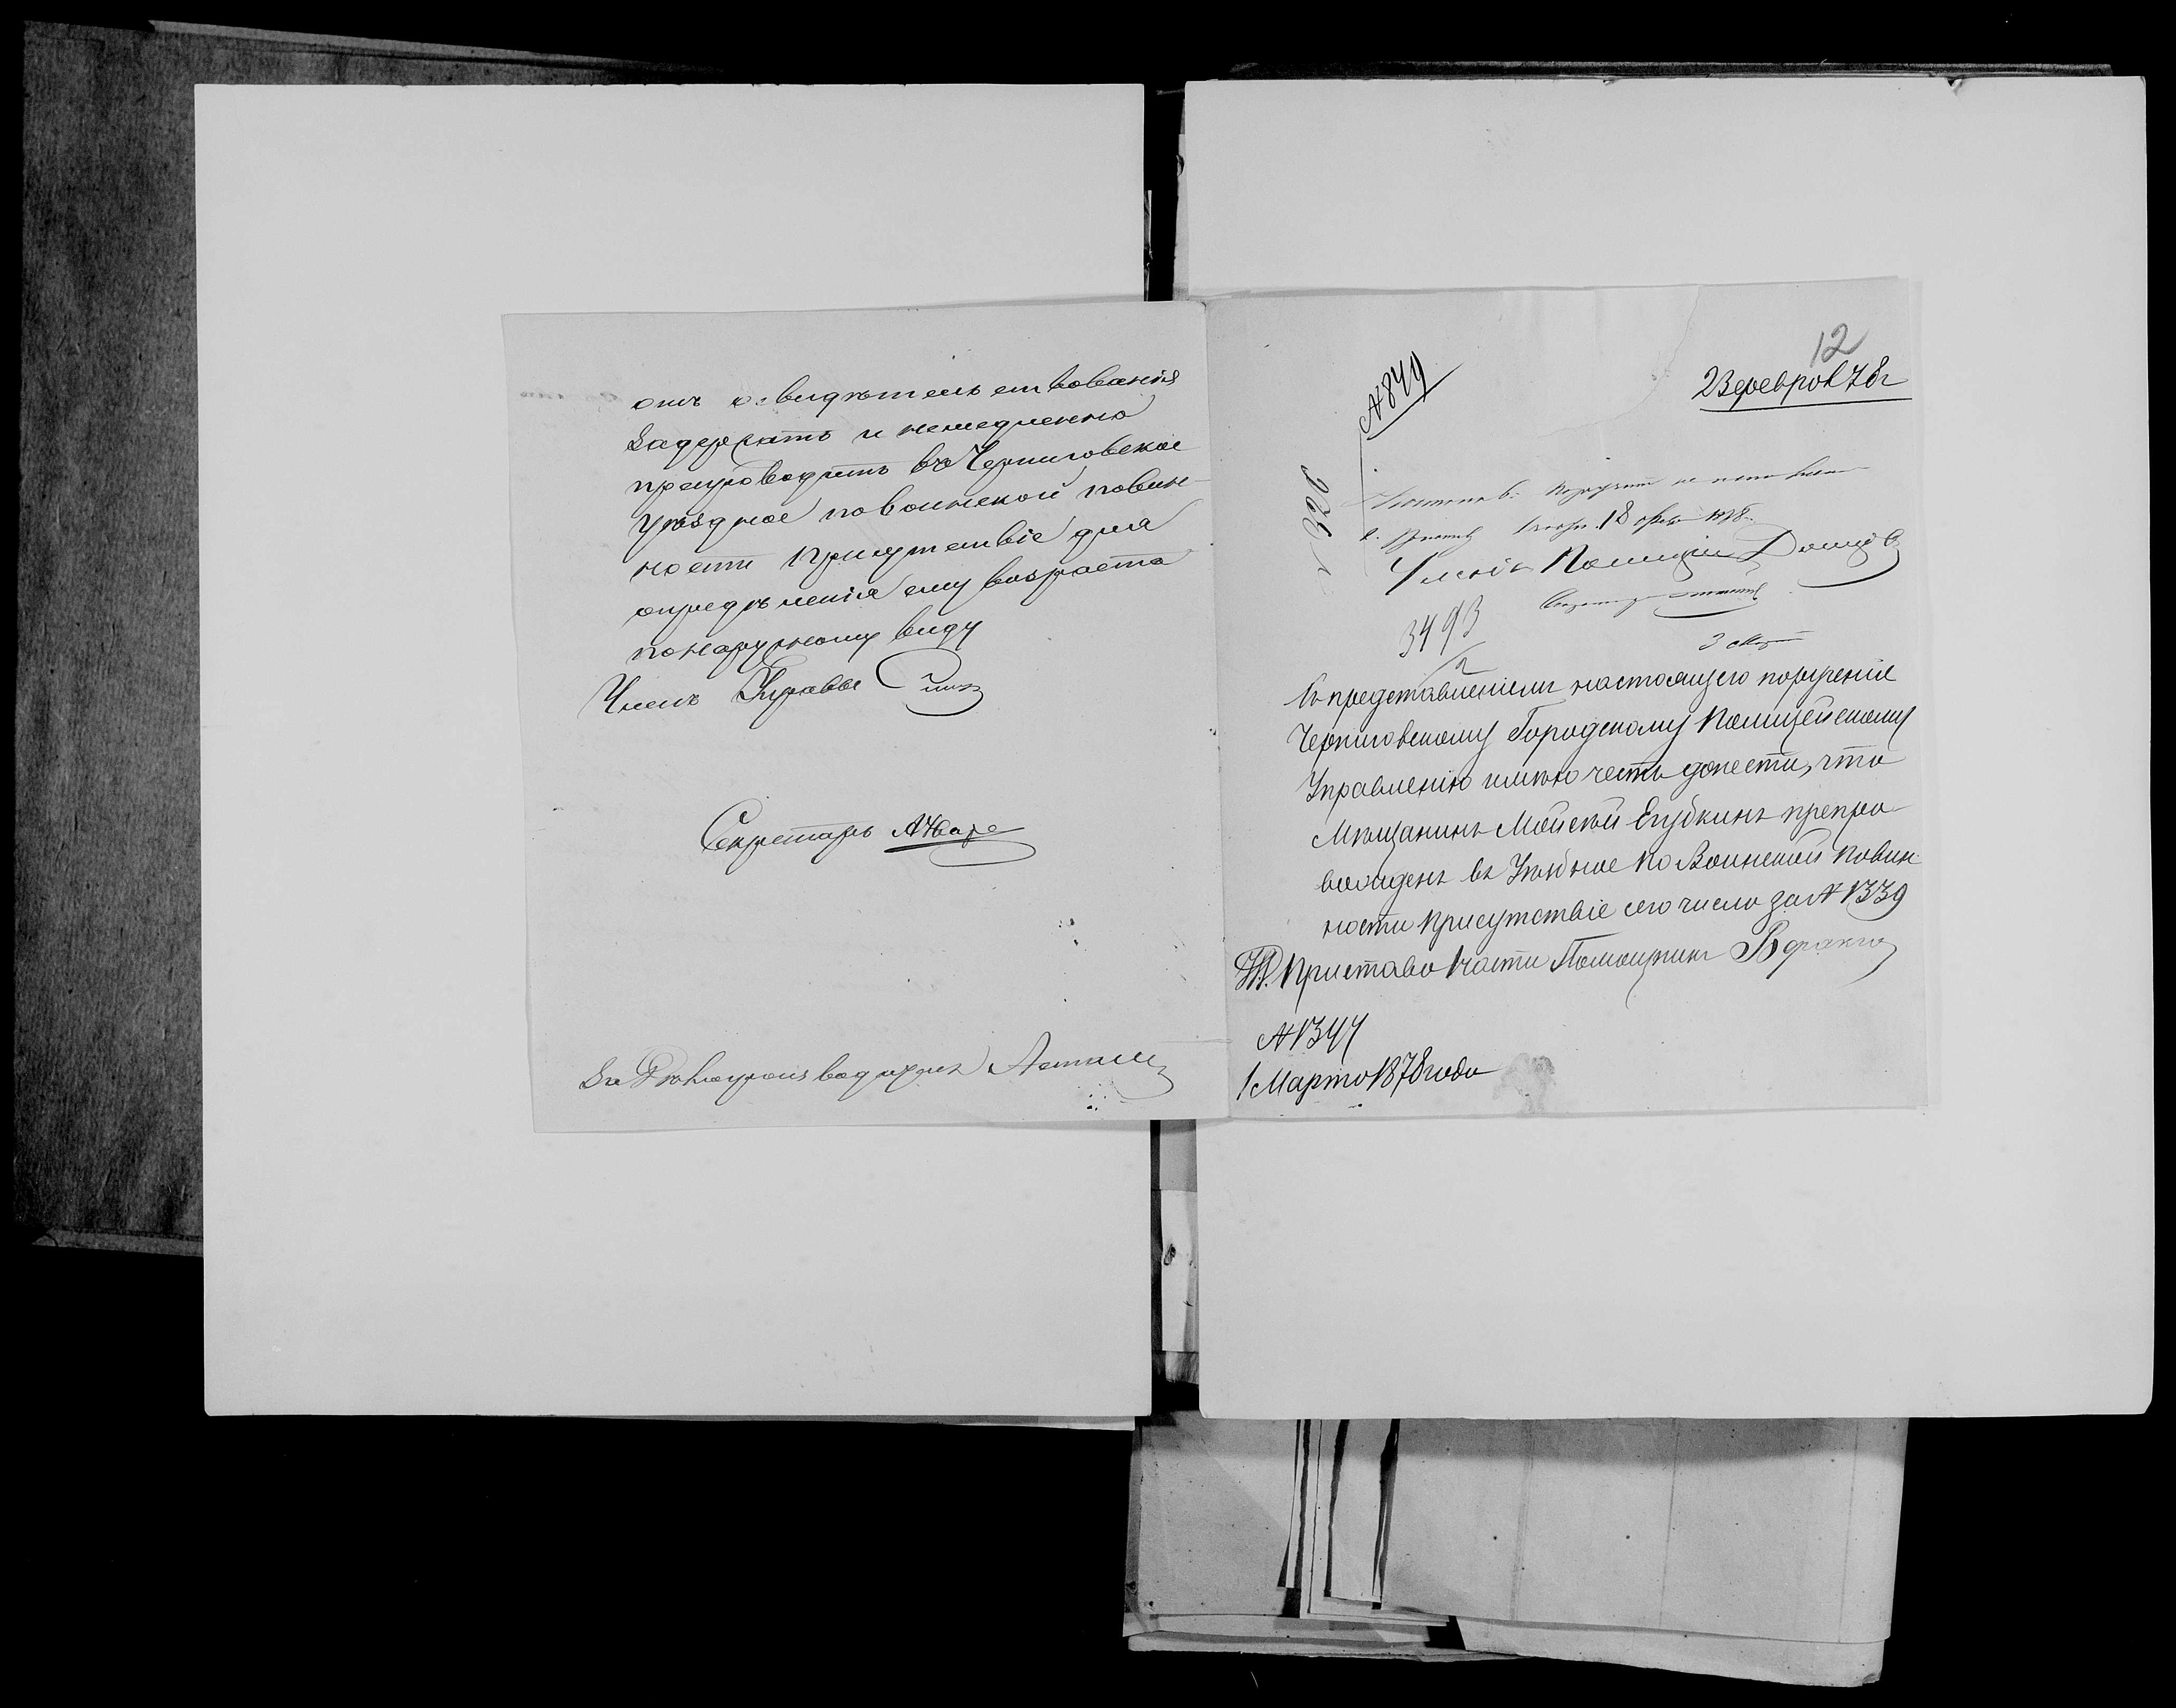 отъ освидѣтельствованія
задержать и немедленно
препроводить въ Черниговское
Уѣздное по воинской повин-
ности Присутствіе для
опредѣленія ему возраста
по наружному виду
Членъ Управы
Секретарь
За Дѣлопроизводителя
12
23 февр 1878 г
№ 849
18 февр 1878
Членъ Полиціи
3493
3 Мар
Съ представленіемъ настоящего порученіе
Черниговскому Городскому Полицейскому
Управленію имѣю честь донести, что
Мѣщанинъ Мойсей Егубкинъ препро-
вожденъ въ Уѣздное по Воинской повин-
ности Присутствіе сего числа за № 1339
Приставъ 1 части Помощникъ
№ 1344
1 Марта 1878 года